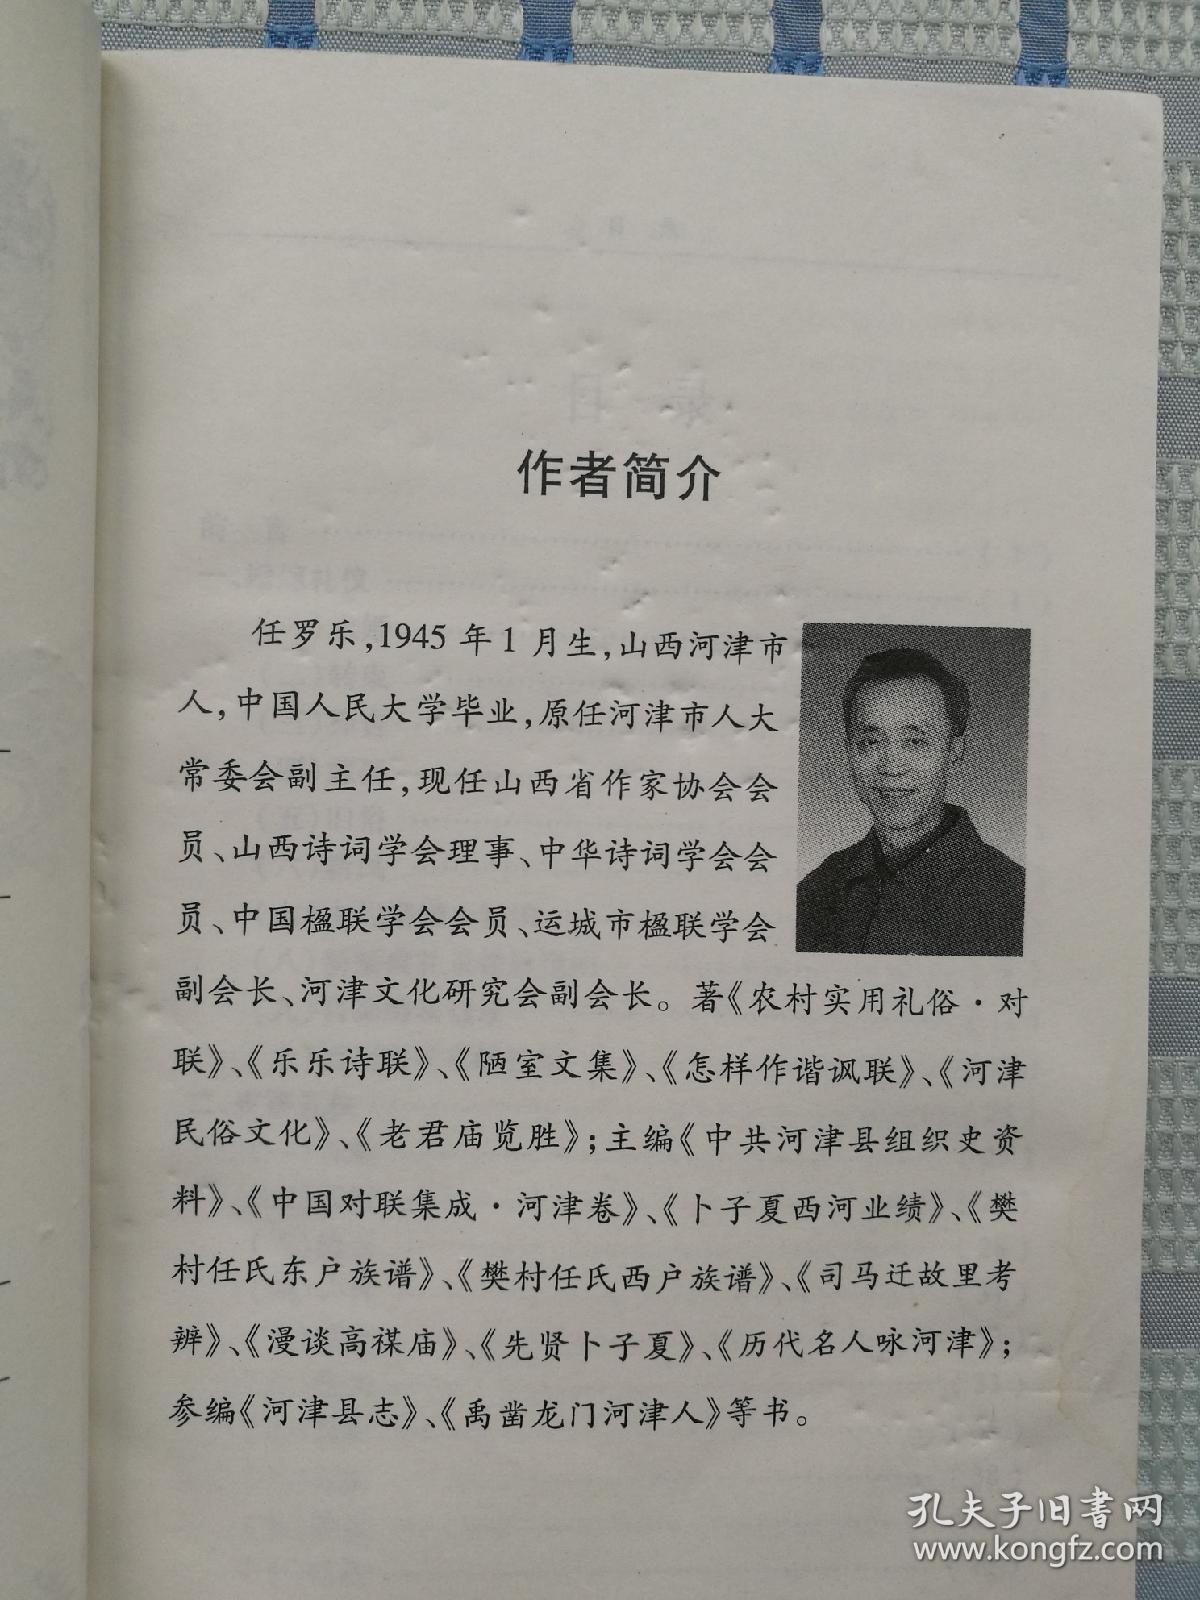 作者简介
任罗乐,1945年1月生,山西河津市
人,中国人民大学毕业,原任河津市人大
常委会副主任,现任山西省作家协会会
员、山西诗词学会理事、中华诗词学会会
员、中国楹联学会会员、运城市楹联学会
副会长、河津文化研究会副会长。著《农村实用礼俗·对
联》、《乐乐诗联》、《陋室文集》、《怎样作谐讽联》、《河津
民俗文化》、《老君庙览胜》;主编《中共河津县组织史资
料》、《中国对联集成·河津卷》、《卜子夏西河业绩》、《樊
村任氏东户族谱》、《樊村任氏西户族谱》、《司马迁故里考
辨》、《漫谈高禖庙》、《先贤卜子夏》、《历代名人咏河津》;
参编《河津县志》、《禹凿龙门河津人》等书。
孔夫子旧书网
www.kongfz.com